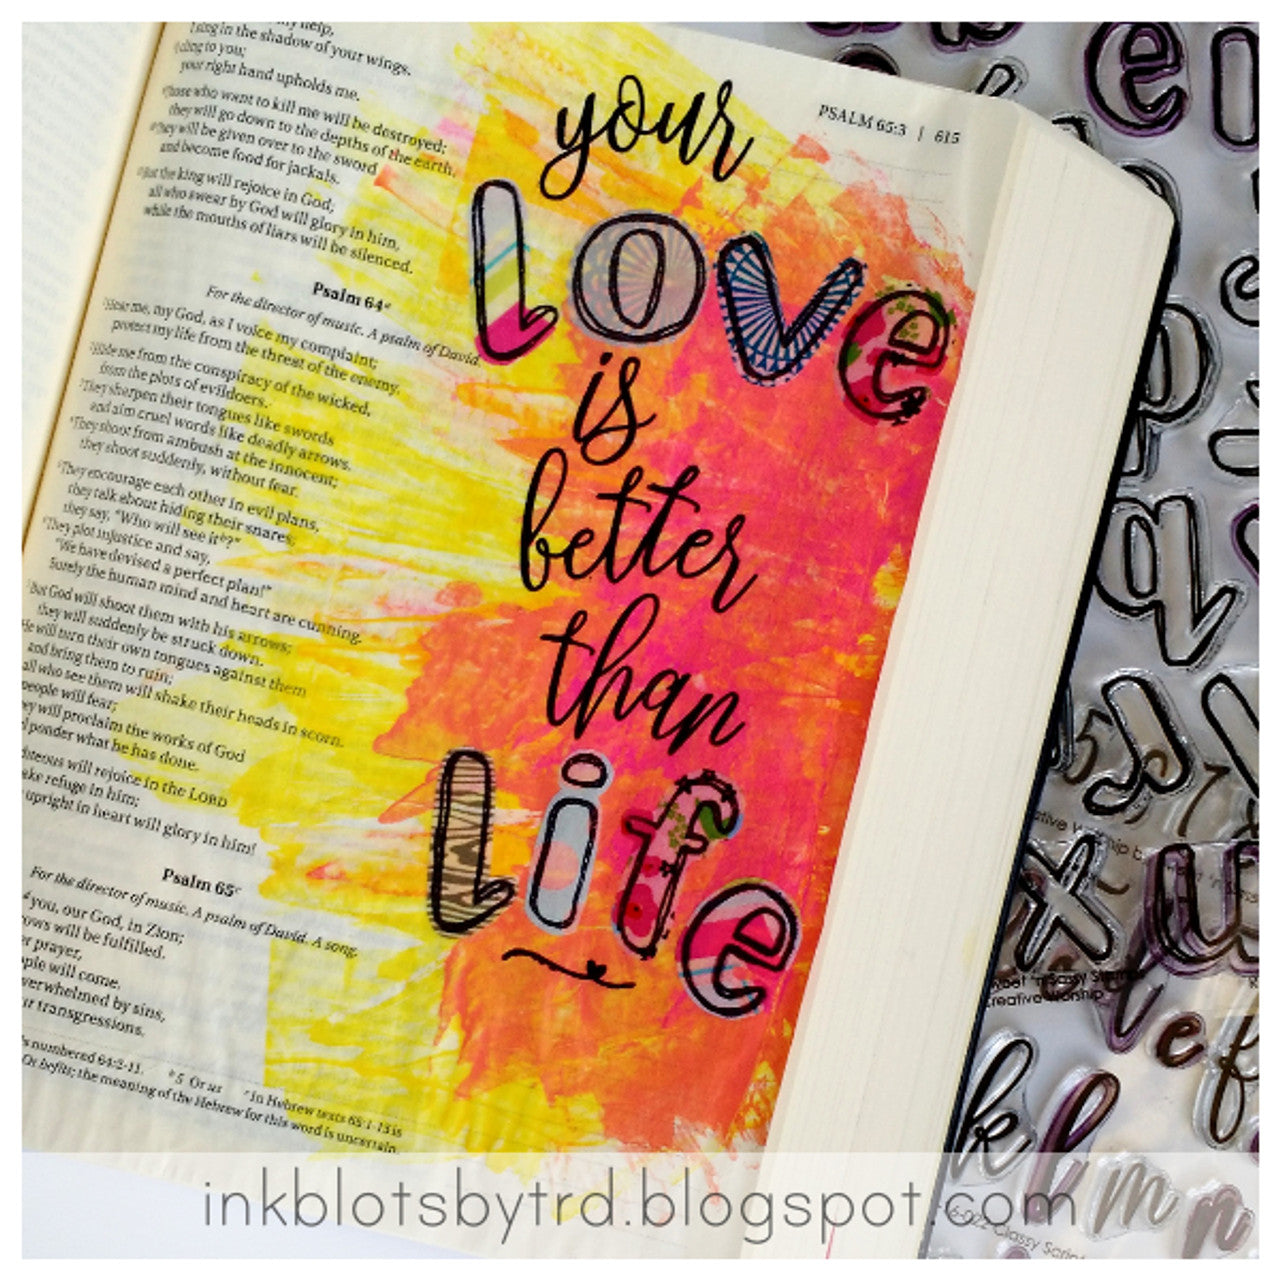 my help,
I sing in the shadow of your wings.
cling to you;
your right hand upholds me.
Those who want to kill me will be destroyed;
they will go down to the depths of the earth.
They will be given over to the sword
and become food for jackals.
But the king will rejoice in God;
all who swear by God will glory in him,
while the mouths of liars will be silenced.
Psalm 64
For the director of music. A psalm of David.
Hear me, my God, as I voice my complaint;
protect my life from the threat of the enemy.
Hide me from the conspiracy of the wicked,
from the plots of evildoers.
They sharpen their tongues like swords
and aim cruel words like deadly arrows.
They shoot from ambush at the innocent;
they shoot suddenly, without fear.
They encourage each other in evil plans,
they talk about hiding their snares;
they say, "Who will see it?"
They plot injustice and say,
"We have devised a perfect plan!"
Surely the human mind and heart are cunning.
But God will shoot them with his arrows;
they will suddenly be struck down.
He will turn their own tongues against them
and bring them to ruin;
all who see them will shake their heads in scorn.
people will fear;
will proclaim the works of God
ponder what he has done.
will rejoice in the LORD
refuge in him;
upright in heart will glory in him!
Psalm 65
For the director of music. A psalm of David. A song.
you, our God, in Zion;
will be fulfilled.
prayer,
will come.
by sins,
transgressions.
numbered 64:2-11. 5 Or us In Hebrew texts 65:1-13 is
Or befits; the meaning of the Hebrew for this word is uncertain.
PSALM 65:3 | 615
your
Love
is
better
than
Life
e
p
q
x
Sweet 'n Sassy Stamps
Creative Worship
e f
k l m n
Classy Script
inkblotsbytrd.blogspot.com